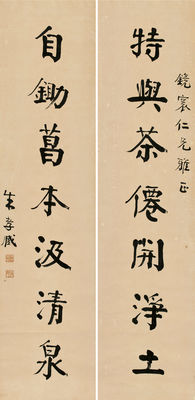 鏡寰仁兄雅正
特與茶僊開淨土
自鋤菖本汲清泉
朱孝臧